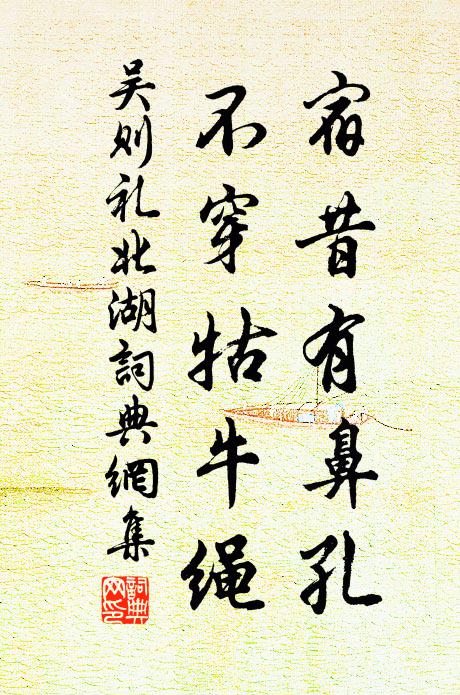 宿昔有鼻孔
不穿牯牛绳
吴则礼北湖詞典網集
詞典网印